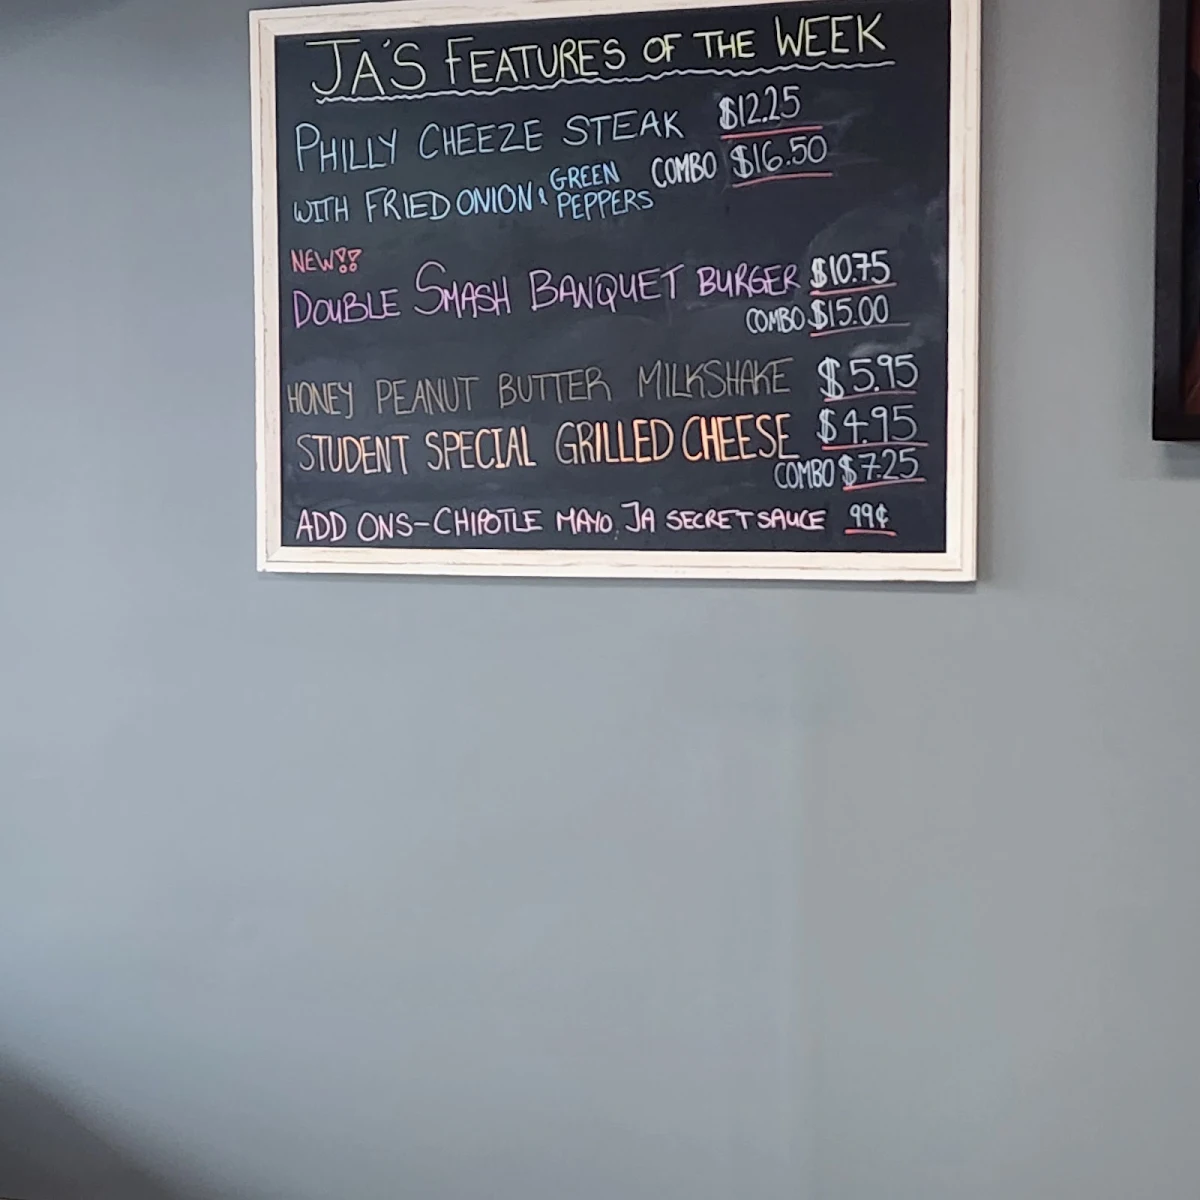 JA'S FEATURES OF THE WEEK
PHILLY CHEEZE STEAK $12.25
WITH FRIED ONION & GREEN PEPPERS COMBO $16.50
NEW!!
DOUBLE SMASH BANQUET BURGER $10.75
COMBO $15.00
HONEY PEANUT BUTTER MILKSHAKE $5.95
STUDENT SPECIAL GRILLED CHEESE $4.95
COMBO $7.25
ADD ONS-CHIPOTLE MAYO, JA SECRET SAUCE 99¢